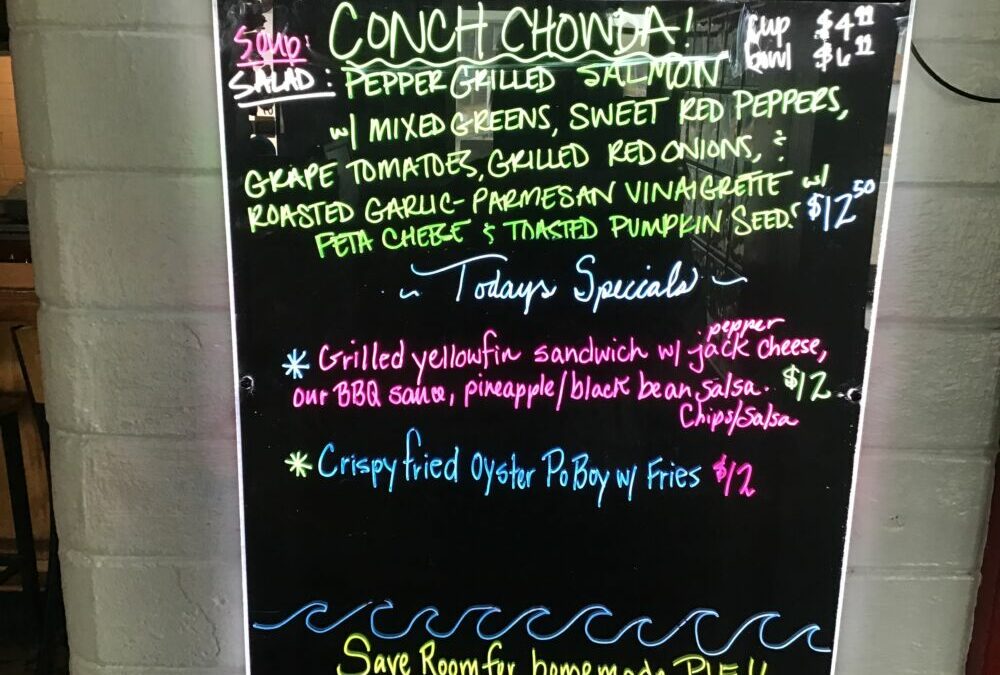 Soup: CONCH CHOWDA! cup $4.99
bowl $6.99
SALAD: PEPPER GRILLED SALMON
w/ MIXED GREENS, SWEET RED PEPPERS,
GRAPE TOMATOES, GRILLED RED ONIONS, &
ROASTED GARLIC-PARMESAN VINAIGRETTE w/
FETA CHEESE & TOASTED PUMPKIN SEEDS $12.50
~ Todays Specials ~
* Grilled yellowfin sandwich w/ pepper jack cheese,
our BBQ sauce, pineapple/black bean salsa. $12
Chips/salsa
* Crispy fried Oyster PoBoy w/ Fries $12
Save Room for homemade PIE!!